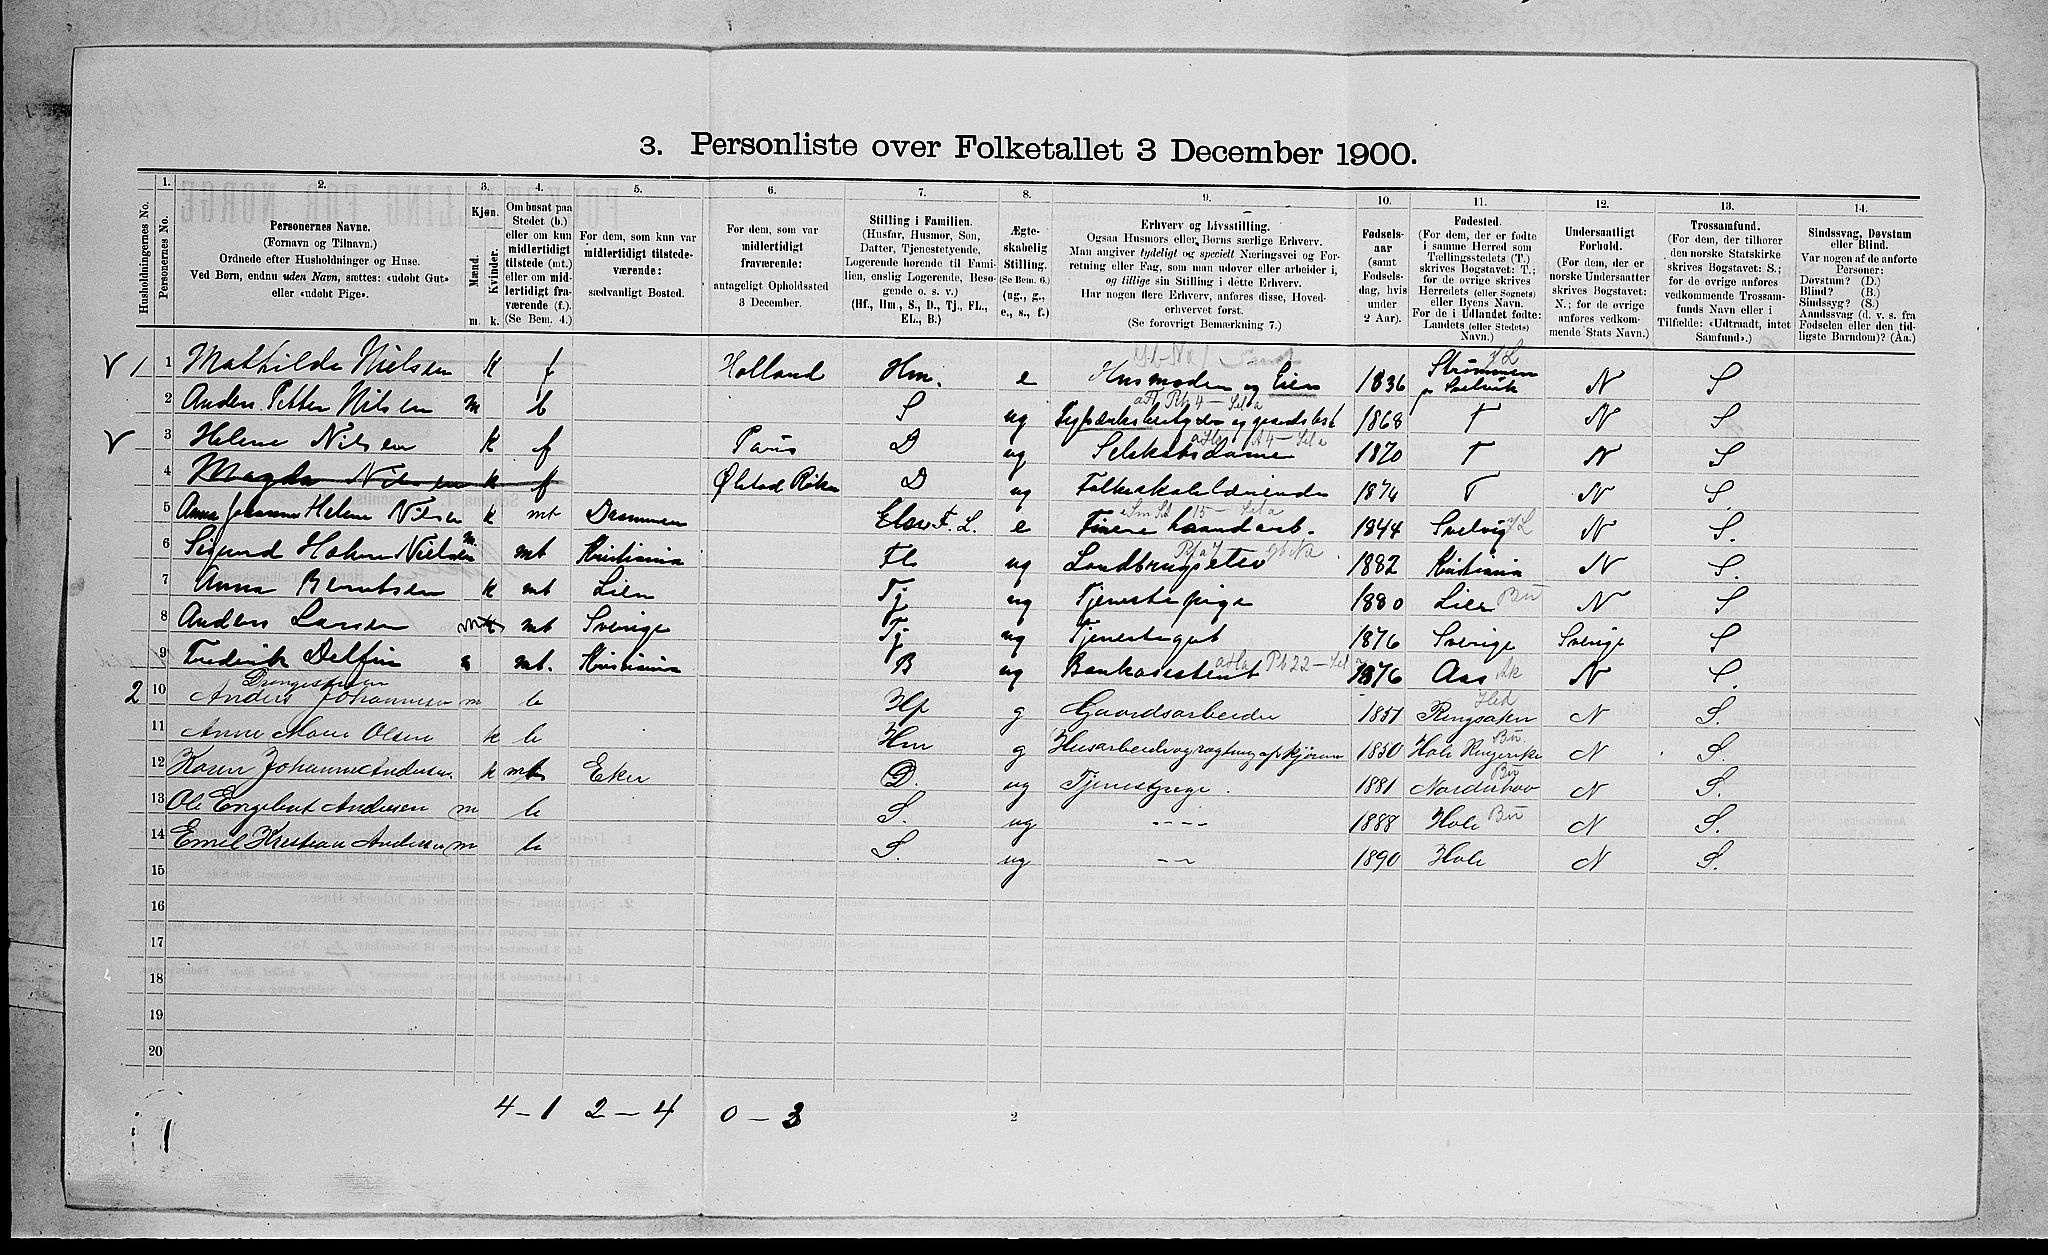 3. Personliste over Folketallet 3 December 1900.
Husholdningernes No.
1. Personernes No.
2. Personernes Navne.
(Fornavn og Tilnavn.)
Ordnede efter Husholdninger og Huse.
Ved Børn, endnu uden Navn, sættes: «udøbt Gut»
eller «udøbt Pige».
3. Kjøn.
Mænd. Kvinder.
m. k.
4. Om bosat paa
Stedet (b.)
eller om kun
midlertidigt
tilstede (mt.)
eller om mid-
lertidigt fra-
værende (f.).
(Se Bem. 4.)
5. For dem, som kun var
midlertidigt tilstede-
værende:
sædvanligt Bosted.
6. For dem, som var
midlertidigt
fraværende:
antageligt Opholdssted
3 December.
7. Stilling i Familien.
(Husfar, Husmor, Søn,
Datter, Tjenestetyende,
Logerende hørende til Fami-
lien, enslig Logerende, Besø-
gende o. s. v.)
(Hf., Hm., S., D., Tj., FL.,
EL., B.)
8. Ægte-
skabelig
Stilling.
(Se Bem. 6.)
(ug., g.,
e., s., f.)
9. Erhverv og Livsstilling.
Ogsaa Husmors eller Børns særlige Erhverv.
Man angiver tydeligt og specielt Næringsvei og For-
retning eller Fag, som man udøver eller arbeider i,
og tillige sin Stilling i dette Erhverv.
Har nogen flere Erhverv, anføres disse, Hoved-
erhvervet først.
(Se forøvrigt Bemærkning 7.)
10. Fødsels-
aar
(samt
Fødsels-
dag, hvis
under
2 Aar).
11. Fødested.
(For dem, der er fødte
i samme Herred som
Tællingsstedets (T.)
skrives Bogstavet: T.;
for de øvrige skrives
Herredets (eller Sognets)
eller Byens Navn.
For de i Udlandet fødte:
Landets (eller Stedets)
Navn.)
12. Undersaatligt
Forhold.
(For dem, der er
norske Undersaatter
skrives Bogstavet:
N.; for de øvrige
anføres vedkom-
mende Stats Navn.)
13. Trossamfund.
(For dem, der tilhører
den norske Statskirke
skrives Bogstavet: S.;
for de øvrige anføres
vedkommende Trossam-
funds Navn eller i
Tilfælde: «Udtraadt, intet
Samfund».)
14. Sindssvag, Døvstum
eller Blind.
Var nogen af de anførte
Personer:
Døvstum? (D.)
Blind? (B.)
Sindssyg? (S.)
Aandssvag (d. v. s. fra
Fødselen eller den tid-
ligste Barndom)? (Aa.)
V 1 1 Mathilde Nielsen k f Holland Hm. e Husmoder og Eier 1836 Strømmen p Svelvik N S
2 Anders Petter Nilsen m b S ug 1868 T N S
V 3 Helene Nilsen k f Paris D ug Selskabsdame 1870 T N S
4 Magda Nilsen k f Ølstad Røken D ug 1874 T N S.
5 Anna Johanne Helene Nilsen k mt Drammen F. L. e Finere haandarb. 1844 Svelvig N S.
6 Sigurd Holm Nielsen m. mt Kristiania FL ug Landbrugselev 1882 Kristiania N S.
7 Anna Berntsen k mt Lier Tj ug Tjenestepige 1880 Lier Bu N S
8 Anders Larsen m mt Sverige Tj ug Tjenestegut 1876 Sverige Sverige S
9 Frederik Delfin m mt. Kristiania B ug Bankassistent 1876 Aas Ak N S.
Drengestuen
2 10 Anders Johannesen m b Hf g Gaardsarbeider 1851 Ringsaker Hed N S.
11 Anne Marie Olsen k b Hm g Husarbeide og røgtning af kjørene 1850 Hole Ringerike Bu N S.
12 Karen Johanne Andersen k mt Eker D. ug Tjenestpige. 1881 Norderhov Bu N S.
13 Ole Engebret Andersen m b S. ug ---- 1888 Hole Bu N S.
14 Emil Kristian Andersen m b S. ug -- 1890 Hole N S.
15
16
17
18
19
20
4 – 1 2 – 4 0 – 3
2
1